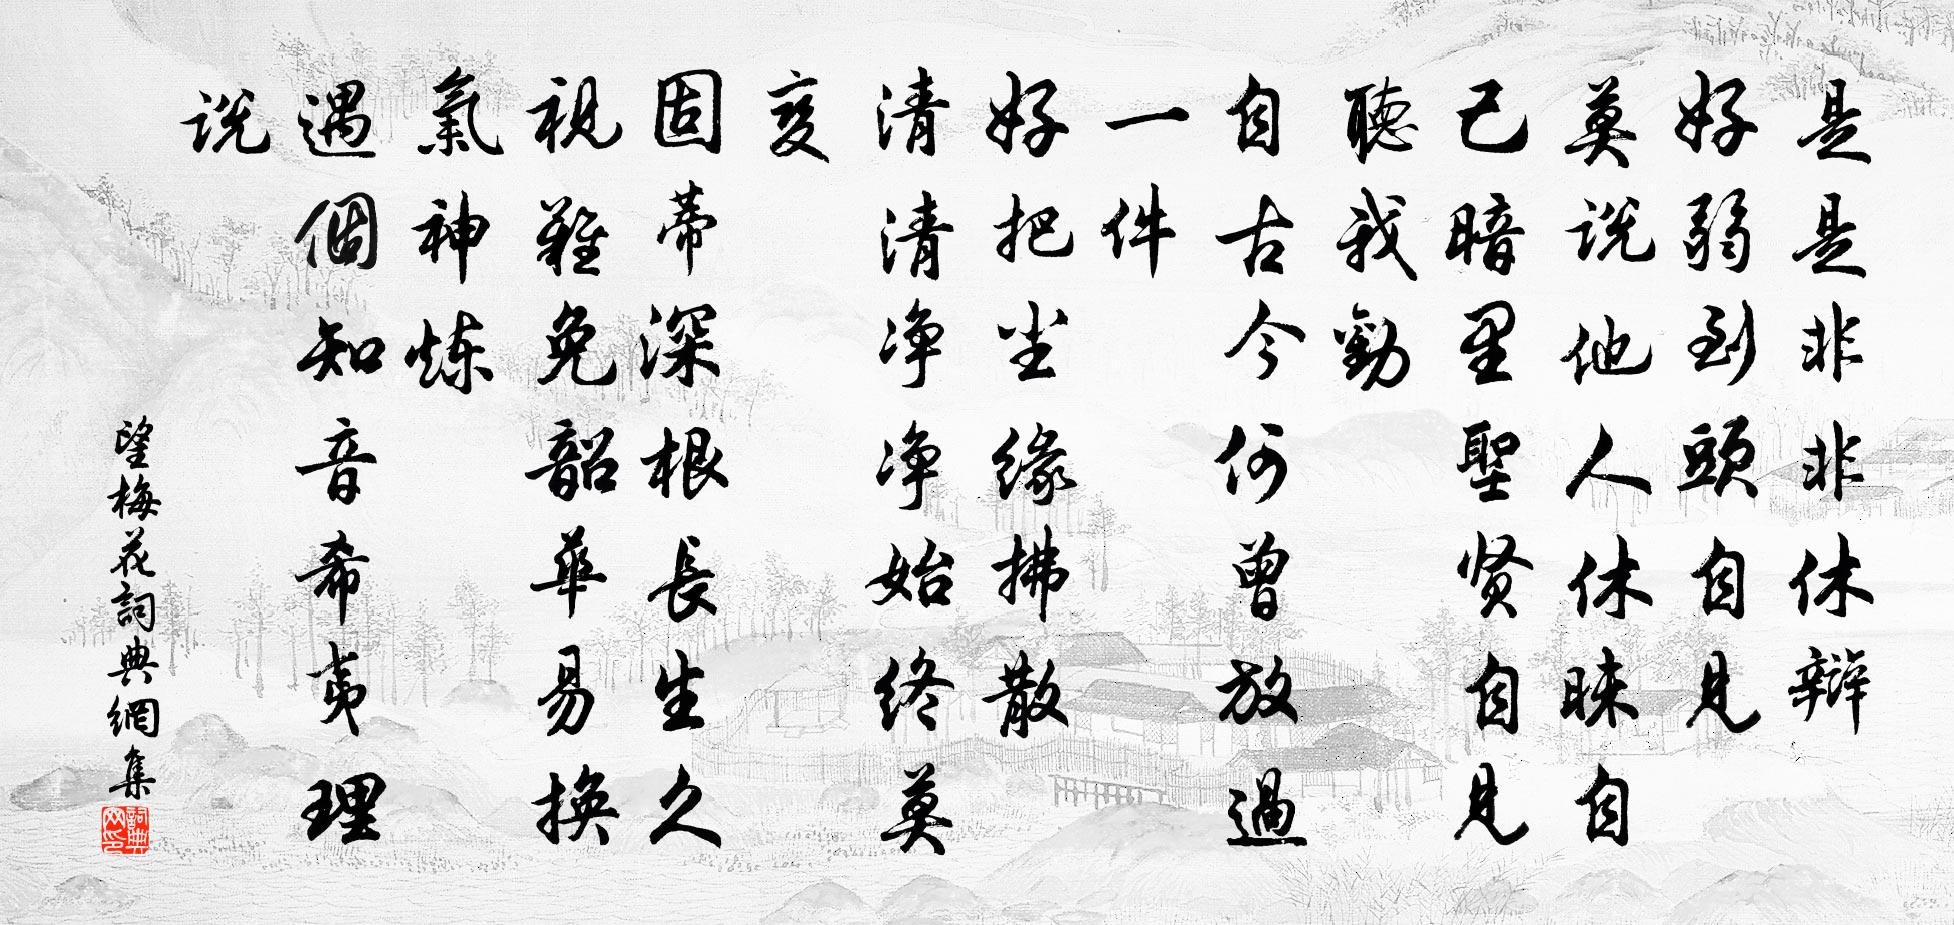 是是非非休辩
好弱到頭自见
莫说他人休昧自
己暗里聖贤自见
聽我勸
自古今何曾放過
一件
好把尘缘拂散
清清净净始终莫
变
固蒂深根長生久
視難免韶華易换
氣神炼
遇個知音希夷理
说
望梅花詞典網集
詞典网印